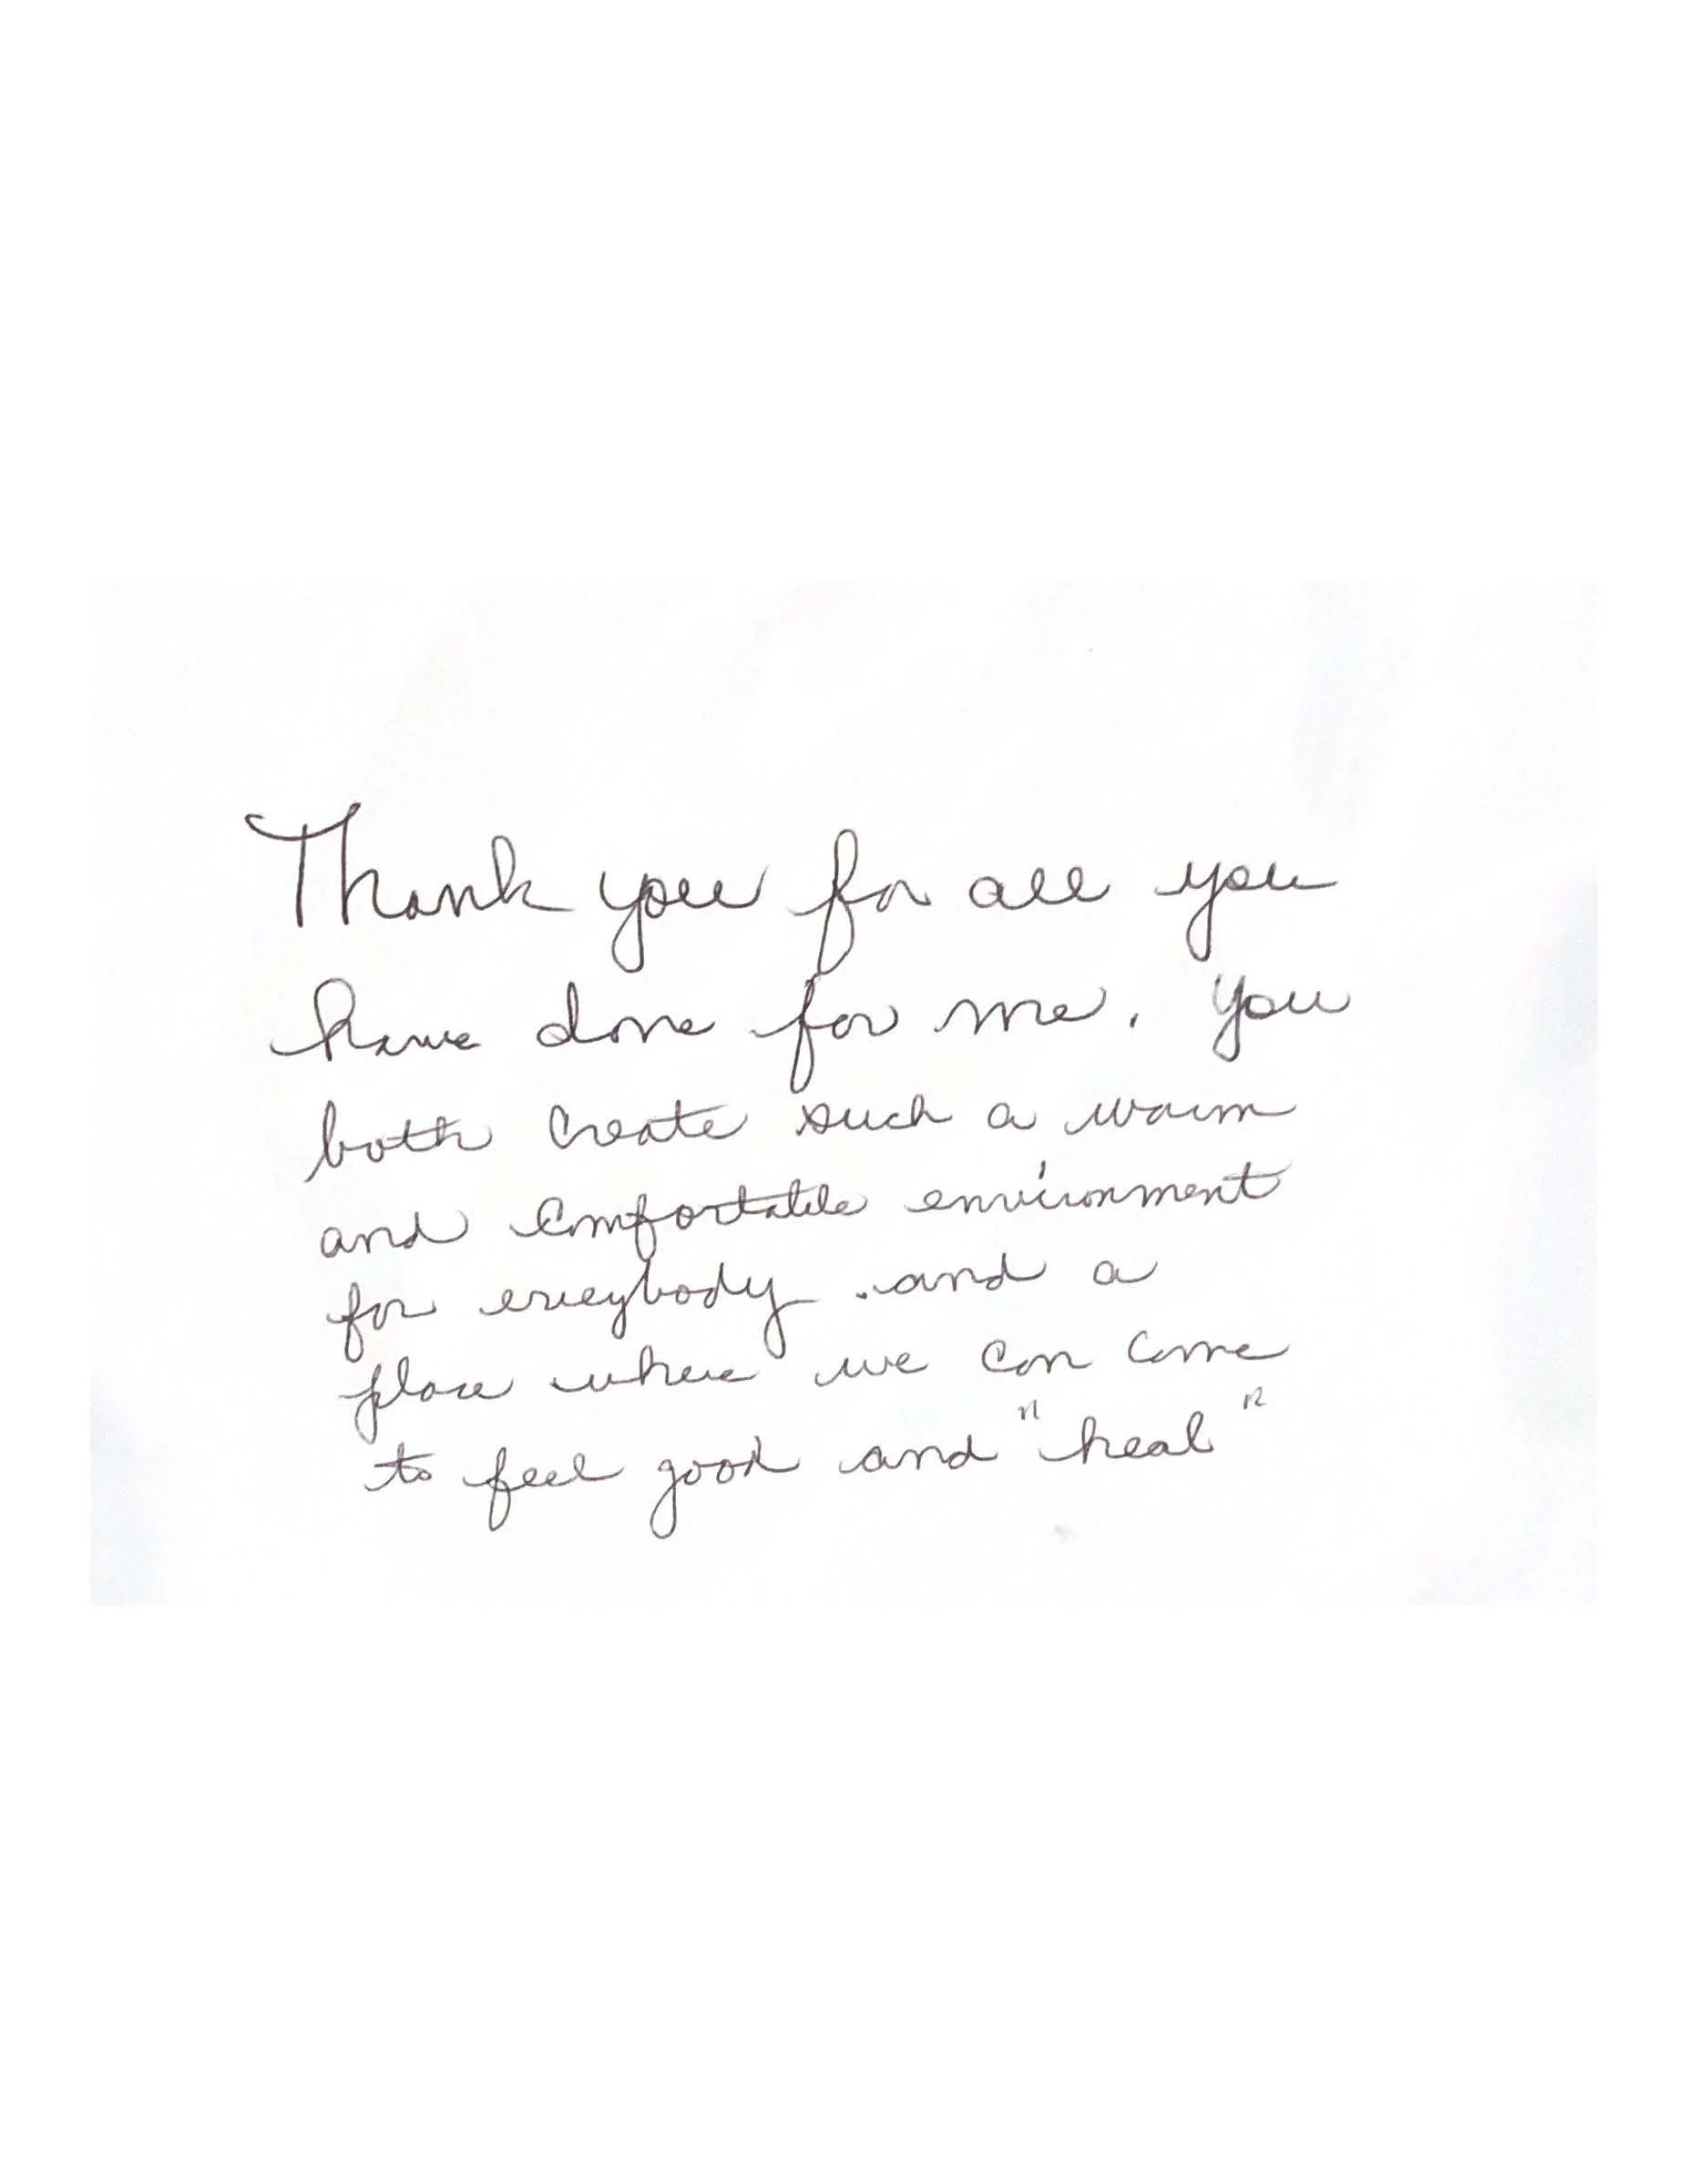 Thank you for all you
have done for me. You
both create such a warm
and comfortable environment
for everybody . and a
place where we can come
to feel good and "heal"